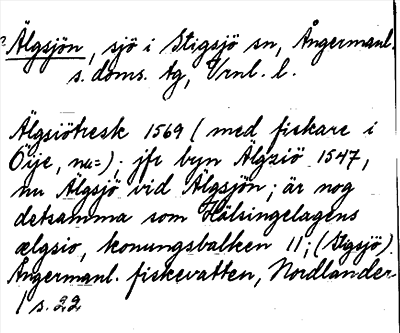 Älgsjön, sjö i Stigsjö sn, Ångermanl.
s. doms. tg, Vrnl. l.
Älgsiötresk 1569 (med fiskare i
Öije, nu=); jfr byn Älgziö 1547,
nu Älgsjö vid Älgsjön; är nog
detsamma som Hälsingelagens
ælgsio, konungsbalken 11; (Stigsjö).
Ångermanl. fiskevatten, Nordlander
s. 22